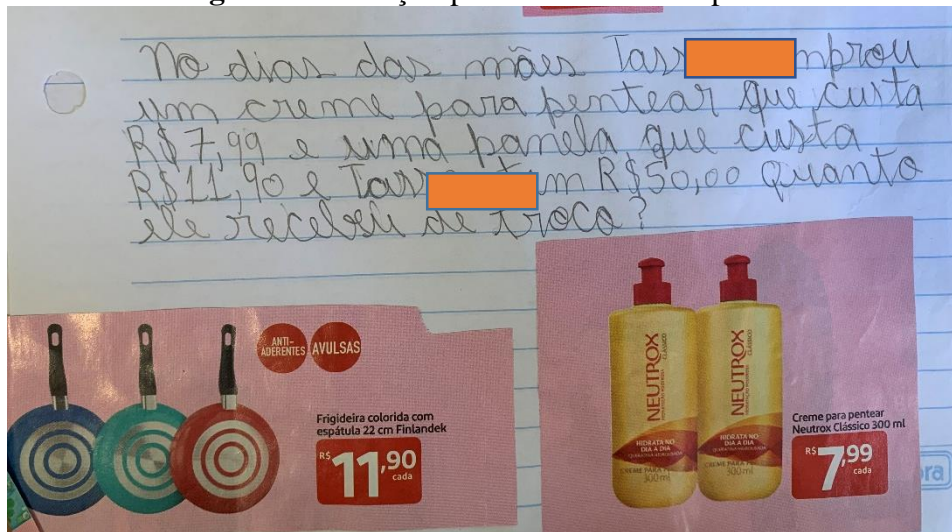 No dias das mães Tass mprou
um creme para pentear que custa
R$ 7,99 e uma panela que custa
R$ 11,90 e Tass m R$ 50,00 quanto
ele recebeu de troco?
ANTI-
ADERENTES
AVULSAS
Frigideira colorida com
espátula 22 cm Finlandek
R$ 11,90
cada
NEUTROX
CLÁSSICO
HIDRATA NO
DIA A DIA
300ml
NEUTROX
CLÁSSICO
HIDRATA NO
DIA A DIA
CREME PARA
300ml
Creme para pentear
Neutrox Clássico 300 ml
R$ 7,99
cada